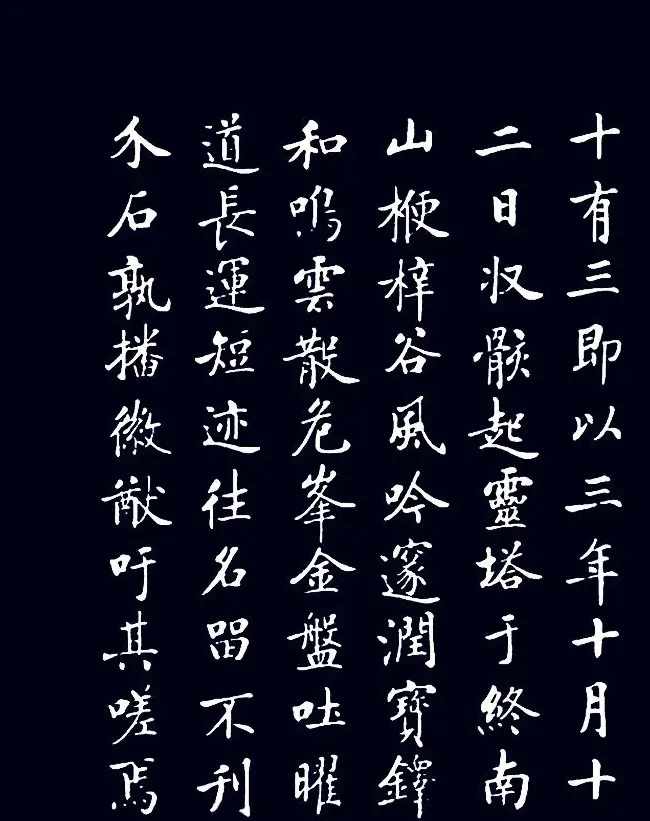 十有三即以三年十月十
二日収骸起靈塔于終南
山楩梓谷風吟邃澗寶鐸
和鳴雲散危峯金盤吐曜
道長運短迹往名留不刋
介石孰播徽猷吁其嗟焉